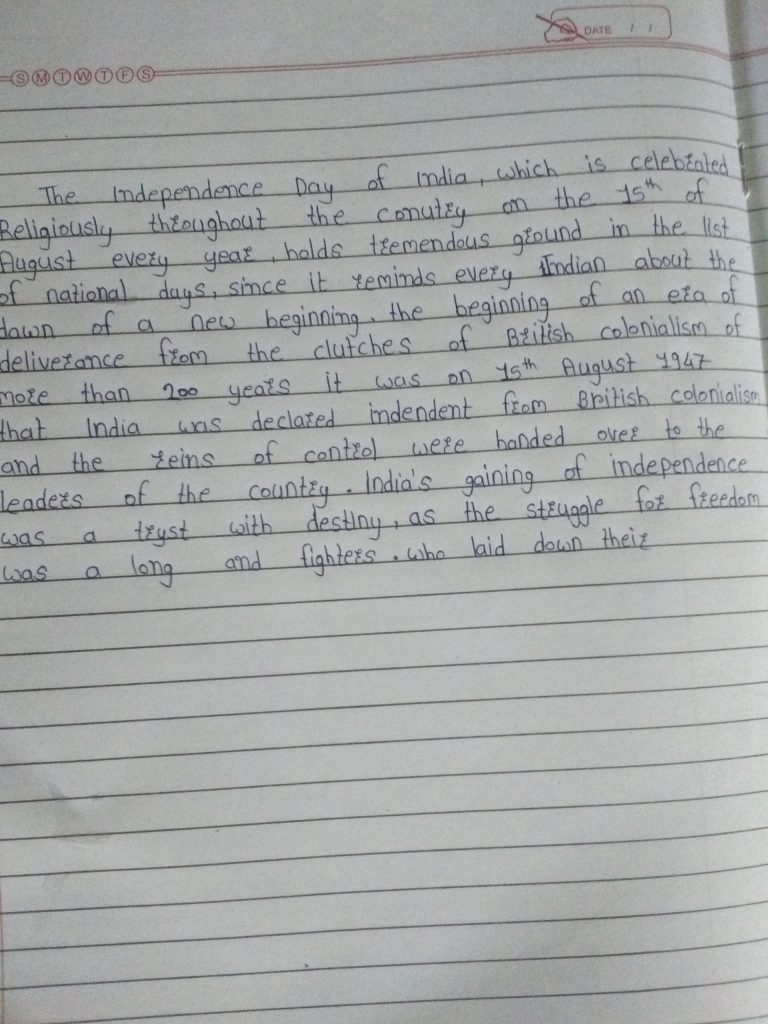 DATE / /
S M T W T F S
The Independence Day of India, which is celebrated
Religiously throughout the conutry on the 15th of
August every year, holds tremendous ground in the list
of national days, since it reminds every Indian about the
dawn of a new beginning, the beginning of an era of
deliverance from the clutches of British colonialism of
more than 200 years it was on 15th August 1947
that India was declared indendent from British colonialism
and the reins of control were handed over to the
leaders of the country. India's gaining of independence
was a tryst with destiny, as the struggle for freedom
was a long and fighters. who laid down their